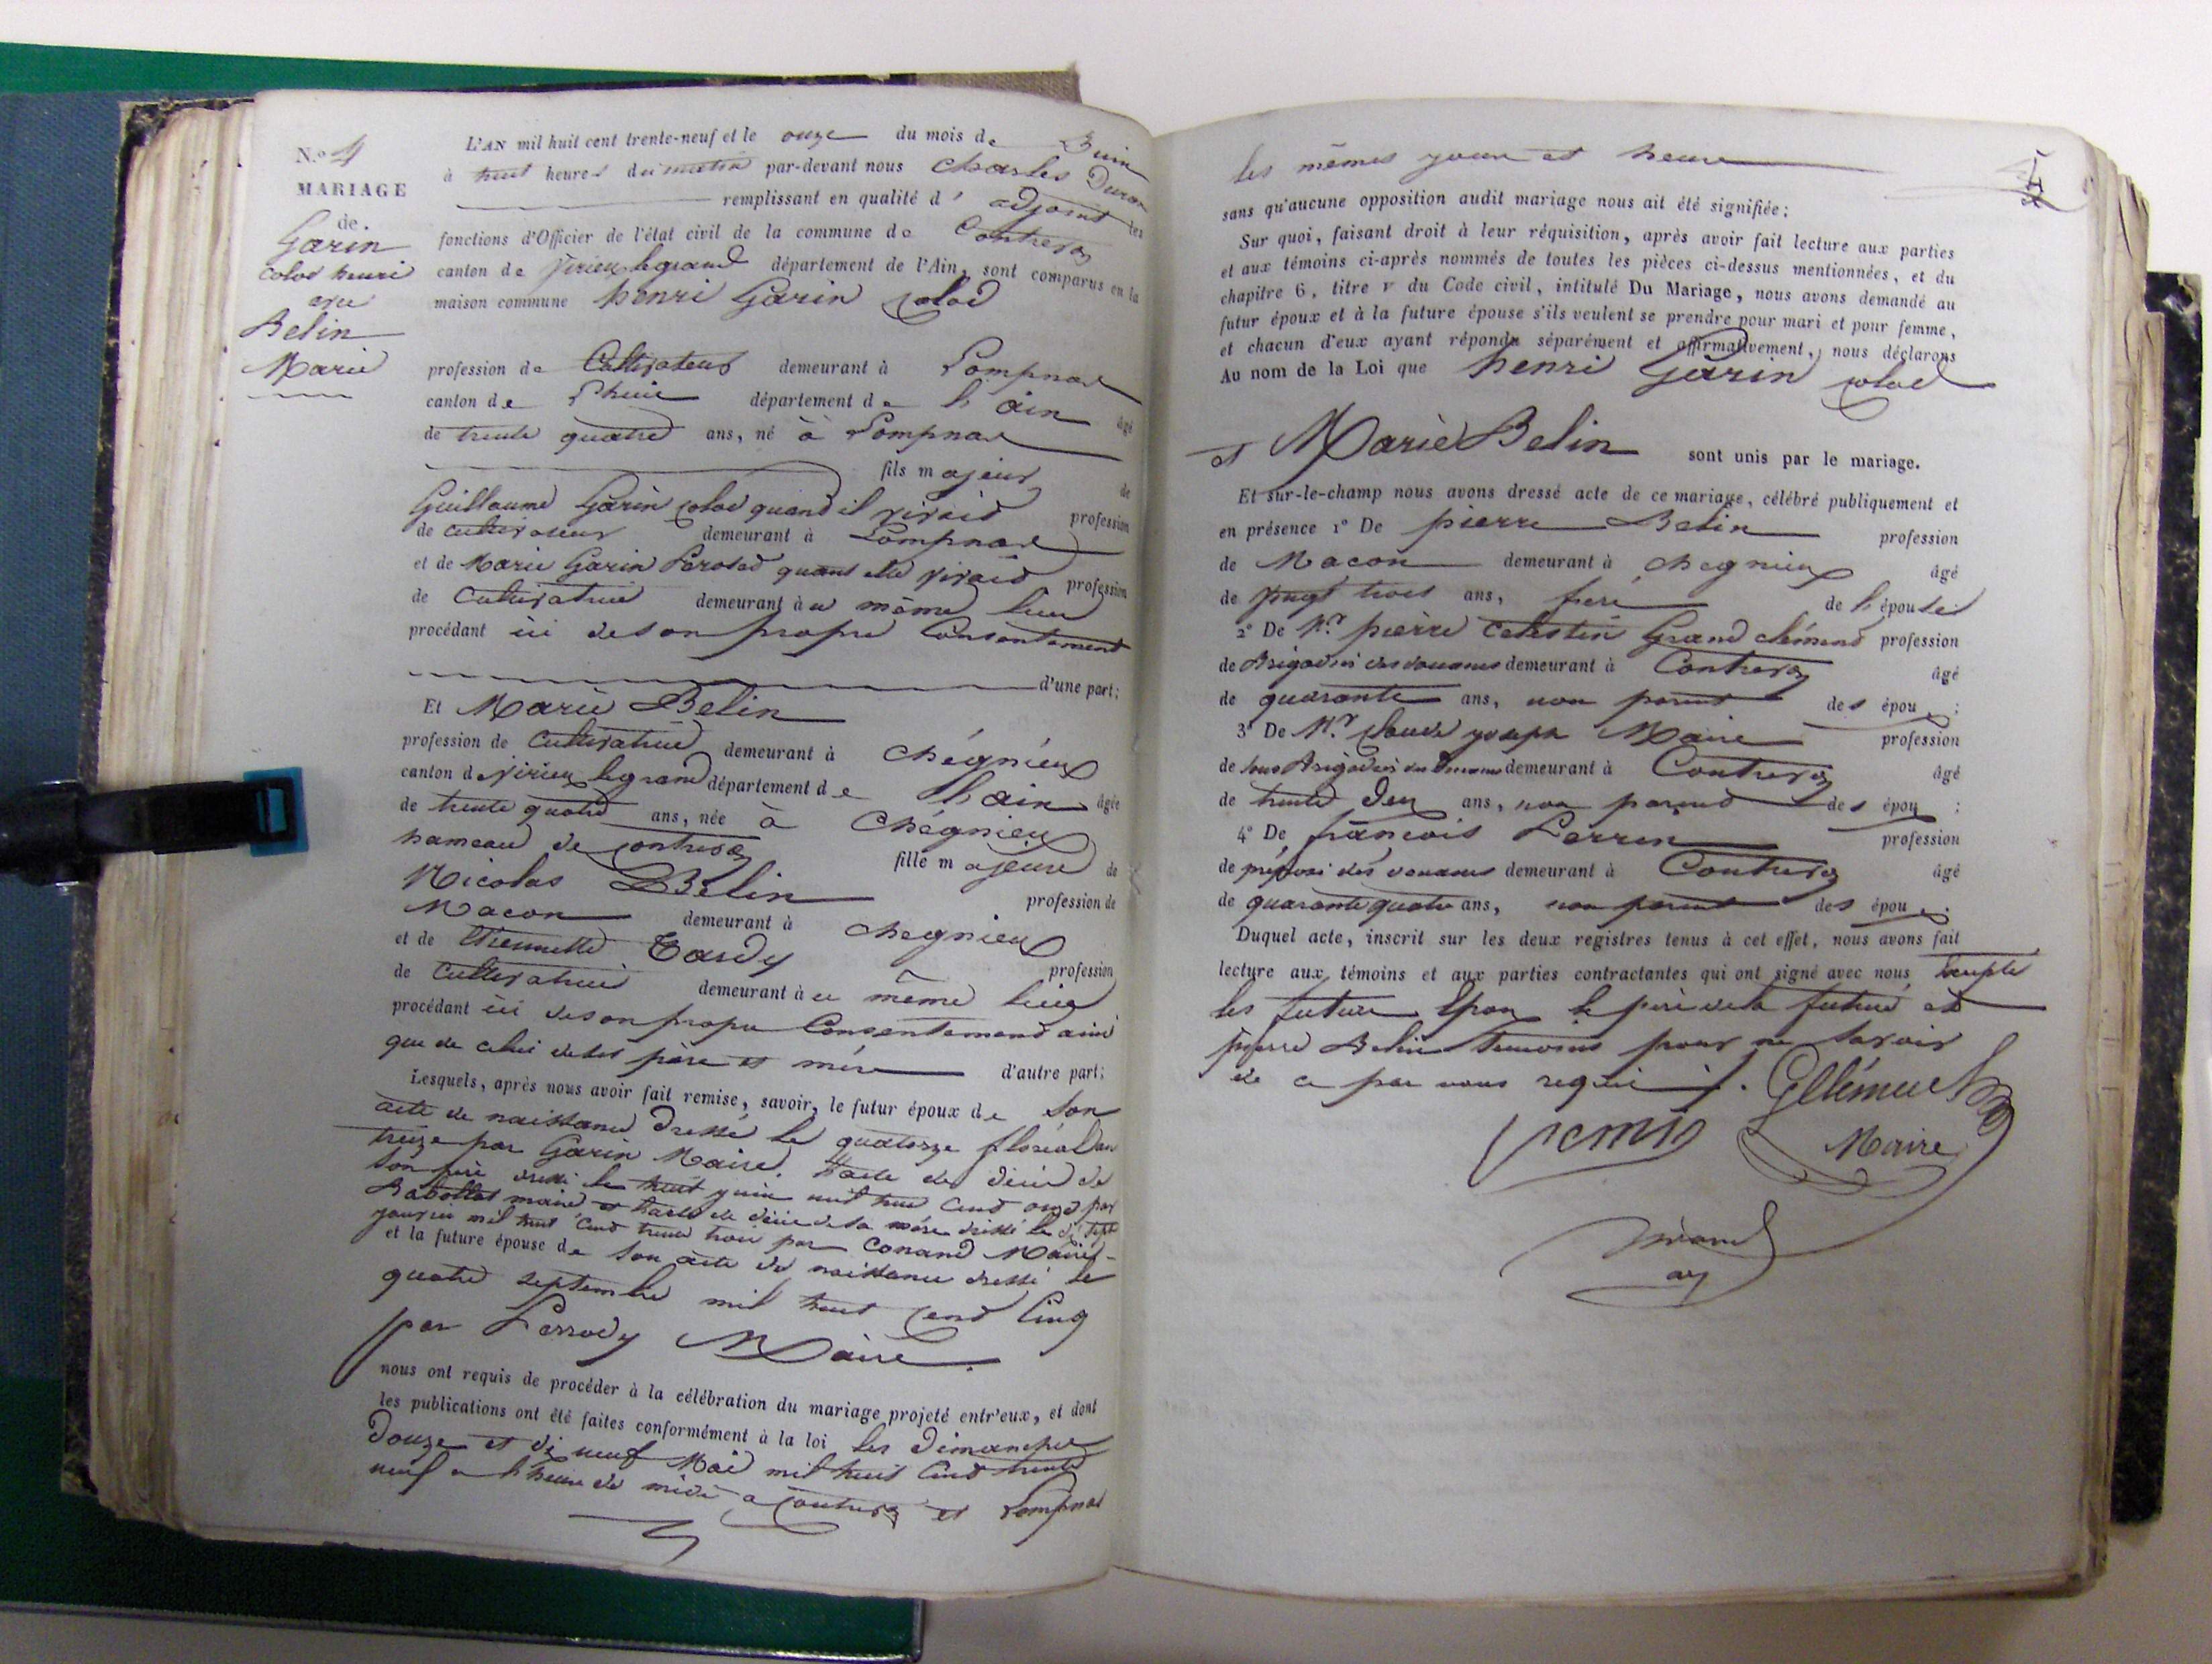 N.º 4
MARIAGE
de
Garin
Colod henri
avec
Belin
Marie
L'AN mil huit cent trente-neuf et le onze du mois de Juin
à huit heures du matin par-devant nous Charles
remplissant en qualité d' adjoint les
fonctions d'Officier de l'état civil de la commune de Contrevoz
canton de Virieu legrand département de l'Ain, sont comparus en la
maison commune henri Garin Colod
profession de Cultivateur demeurant à Lompnas
canton de Lhuis département de l'ain âgé
de trente quatre ans, né à Lompnas
fils majeur de
Guillaume Garin Colod quand il vivait profession
de cultivateur demeurant à Lompnas
et de Marie Garin Perolad quant elle vivait profession
de Cultivatrice demeurant à u même lieu
procédant ici de son propre Consentement
d'une part;
Et Marie Belin
profession de Cultivatrice demeurant à Chégnieux
canton de Virieu legrand département de l'ain âgée
de trente quatre ans, née à Chégnieux
hameau de Contrevoz fille majeure de
Nicolas Belin profession de
Macon demeurant à Chegnieux
et de Etiennette Tardy profession
de Cultivatrice demeurant à u même lieu
procédant ici de son propre Consentement ainsi
que de celui de ses père et mère d'autre part;
Lesquels, après nous avoir fait remise, savoir, le futur époux de son
acte de naissance dressé le quatorze floréal an
treize par Garin Maire. l'acte de décès de
son père dressé le huit juin mil huit cent onze par
maire et l'acte de décès de sa mère dressé le dix sept
janvier mil huit cent trente trois par Conand Maire
et la future épouse de son acte de naissance dressé le
quatre septembre mil huit cent cinq
par Perrody Maire
nous ont requis de procéder à la célébration du mariage projeté entr'eux, et dont
les publications ont été faites conformément à la loi les dimanches
douze et dix neuf Mai mil huit cent trente
neuf a l'heure de midi a Contrevoz et Lompnas
les mêmes jour et heure
sans qu'aucune opposition audit mariage nous ait été signifiée;
Sur quoi, faisant droit à leur réquisition, après avoir fait lecture aux parties
et aux témoins ci-après nommés de toutes les pièces ci-dessus mentionnées, et du
chapitre 6, titre v du Code civil, intitulé Du Mariage, nous avons demandé au
futur époux et à la future épouse s'ils veulent se prendre pour mari et pour femme,
et chacun d'eux ayant répondu séparément et affirmativement, nous déclarons
Au nom de la Loi que henri Garin Colod
et Marie Belin sont unis par le mariage.
Et sur-le-champ nous avons dressé acte de ce mariage, célébré publiquement et
en présence 1º De pierre Belin profession
de Macon demeurant à Chegnieux âgé
de vingt trois ans, frere de l'épouse
2º De Mr. pierre Celestin Grand clément profession
de Brigadier des douanes demeurant à Contrevoz âgé
de quarante ans, non parent des épou x;
3º De Mr. Claude joseph Maire profession
de sous Brigadier des Douanes demeurant à Contrevoz âgé
de trente deux ans, non parent des épou x;
4º De françois Perrin profession
de préposé des douanes demeurant à Contrevoz âgé
de quarante quatre ans, non parent des épou x.
Duquel acte, inscrit sur les deux registres tenus à cet effet, nous avons fait
lecture aux témoins et aux parties contractantes qui ont signé avec nous, excepté
les futurs Epoux le père de la future et
pierre Belin temoins pour ne savoir
de ce par nous requis
Maire